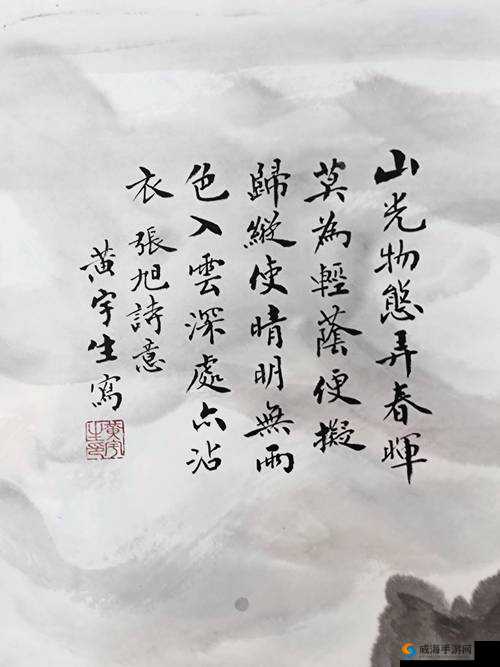 山光物態弄春暉
莫為輕蔭便擬
歸縱使晴明無雨
色入雲深處亦沾
衣 張旭詩意
黃宇生寫
黃宇
生印
威海手游网